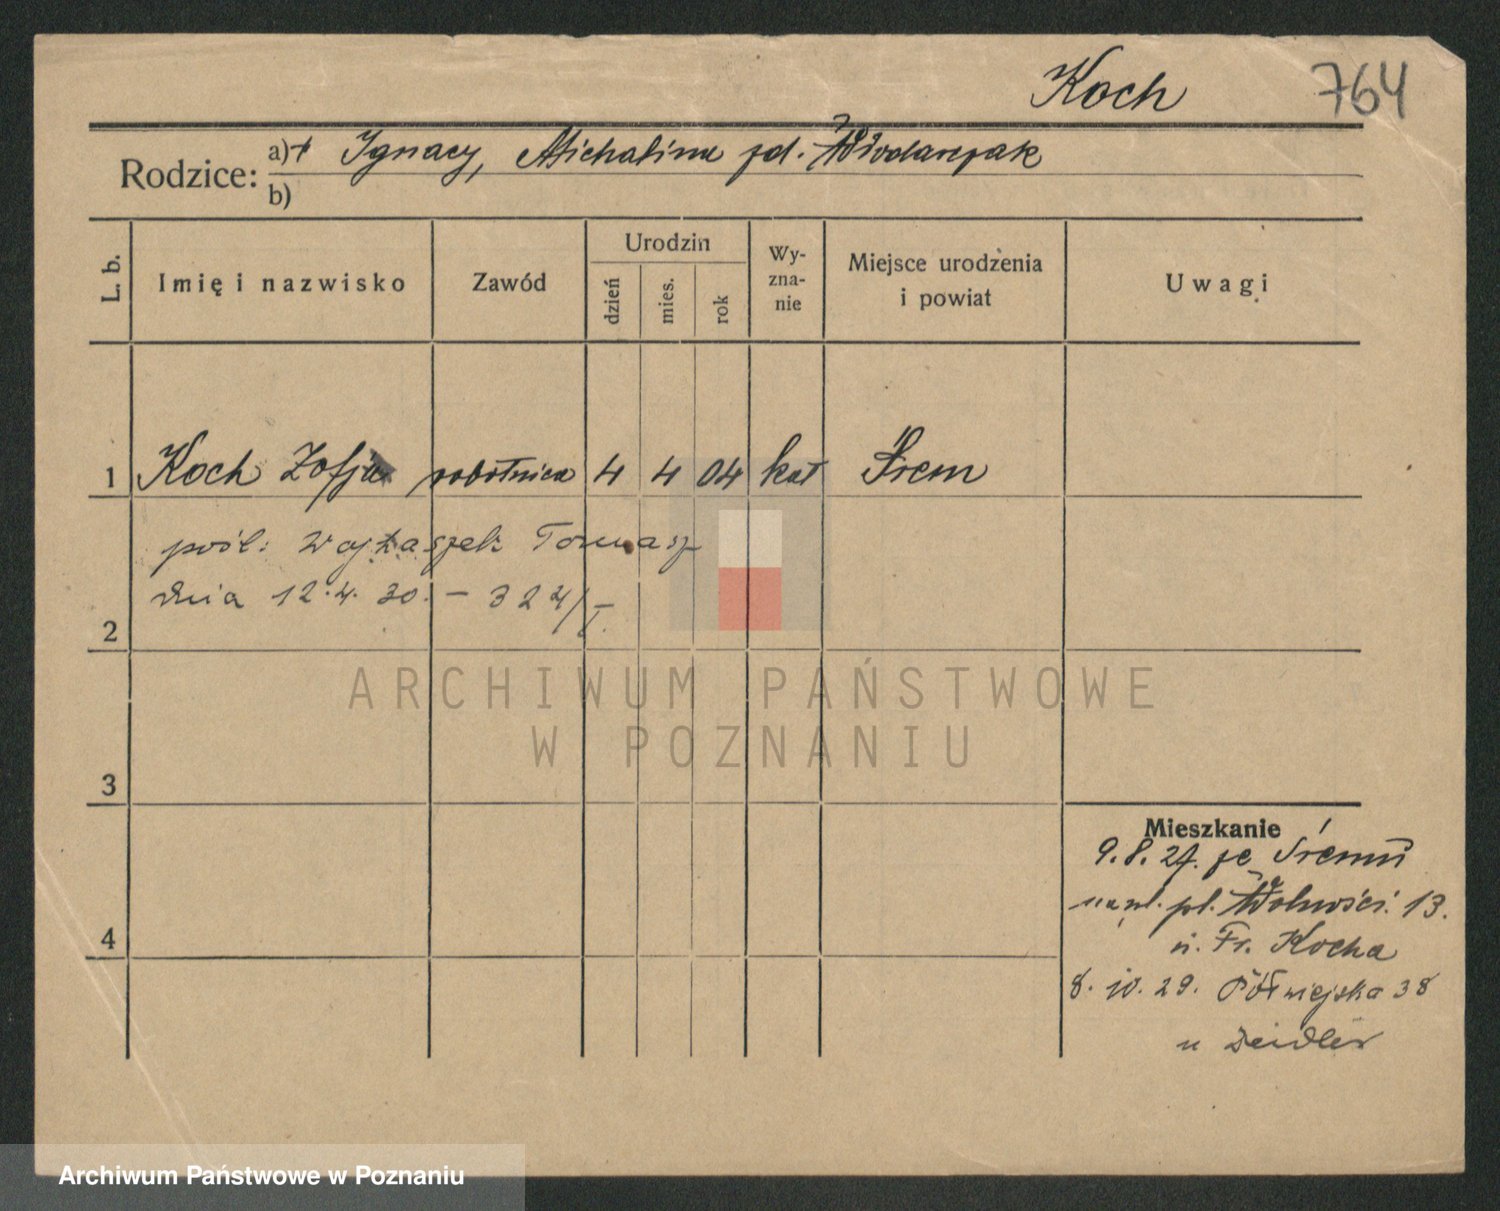 Koch 764
Rodzice: a) + Ignacy, Michalina zd. Włodarczak
b)
L. b. Imię i nazwisko Zawód Urodzin dzień mies. rok Wyznanie Miejsce urodzenia i powiat Uwagi
1 Koch Zofja robotnica 4 4 04 kat Śrem
pośl: Wojtaszek Tomasz
dnia 12.4.30. — 324/I.
2
ARCHIWUM PAŃSTWOWE
W POZNANIU
3
Mieszkanie
9.8.27. ze Śremu
pl. Wolności 13.
u. Fr. Kocha
4
8. 10. 29. Półwiejska 38
u Zeidler
Archiwum Państwowe w Poznaniu